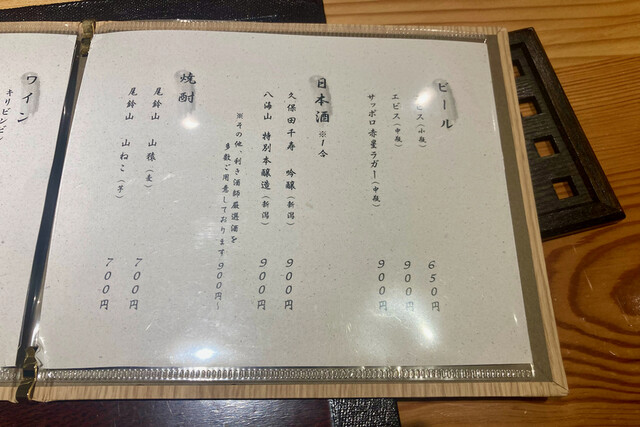 ビール
ビス（小瓶） 650円
エビス（中瓶） 900円
サッポロ赤星ラガー（中瓶） 900円
日本酒 ※1合
久保田千寿 吟醸（新潟） 900円
八海山 特別本醸造（新潟） 900円
※その他、利き酒師厳選酒を
多数ご用意しております 900円～
焼酎
尾鈴山 山猿（麦） 700円
尾鈴山 山ねこ（芋） 700円
ワイン